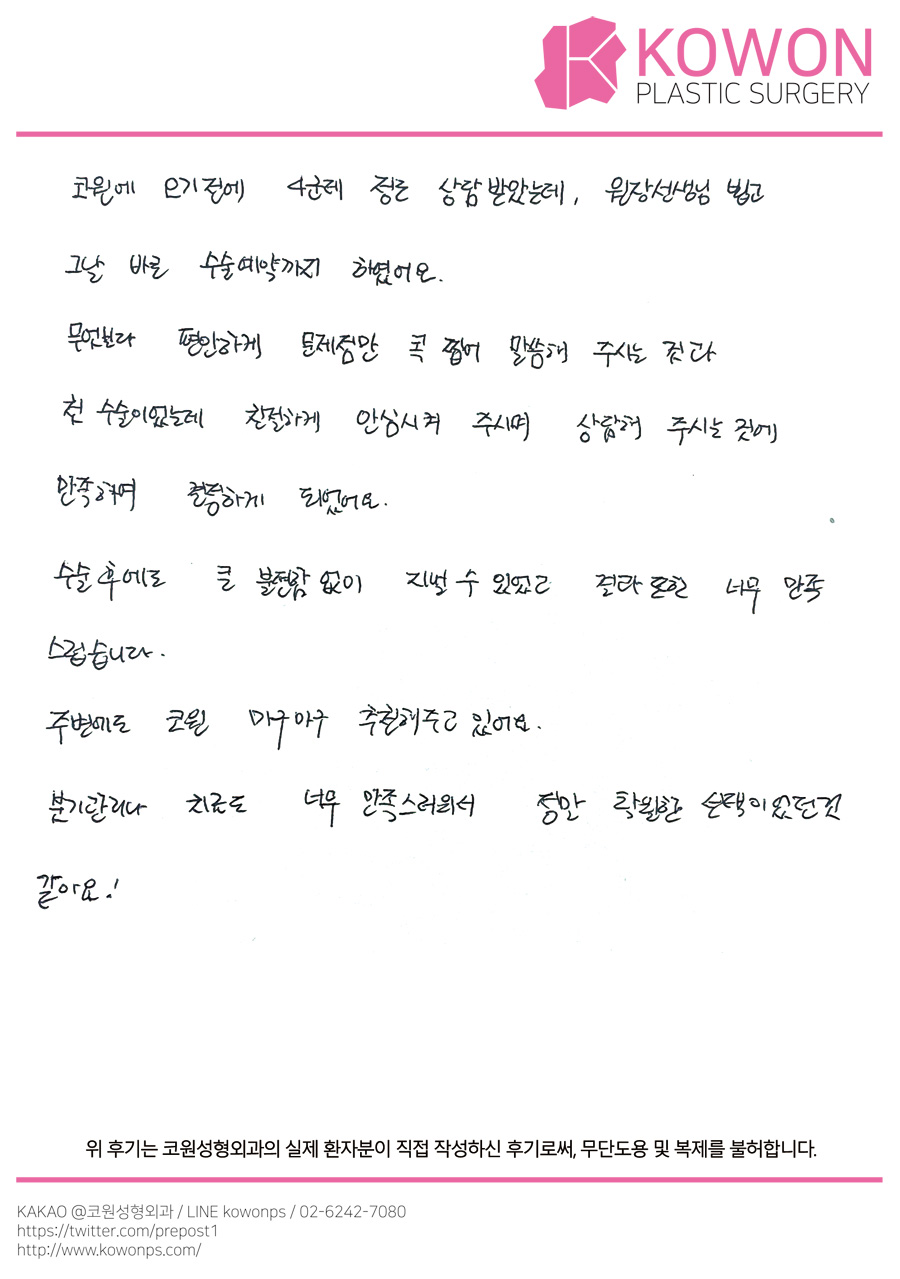 KOWON
PLASTIC SURGERY
코원에 오기전에 4군데 정도 상담받았는데, 원장선생님 뵙고
그날 바로 수술예약까지 하였어요.
무엇보다 편안하게 문제점만 콕 찝어 말씀해 주시는 것과
첫 수술이었는데 친절하게 안심시켜 주시며 상담해 주시는것에
만족하며 결정하게 되었어요.
수술후에도 큰 불편함없이 지낼 수 있었고 결과또한 너무 만족
스럽습니다.
주변에도 코원 마구마구 추천해주고 있어요.
붓기관리나 치료도 너무 만족스러워서 정말 탁월한 선택이었던것
같아요!
위 후기는 코원성형외과의 실제 환자분이 직접 작성하신 후기로써, 무단도용 및 복제를 불허합니다.
KAKAO @코원성형외과 / LINE kowonps / 02-6242-7080
https://twitter.com/prepost1
http://www.kowonps.com/